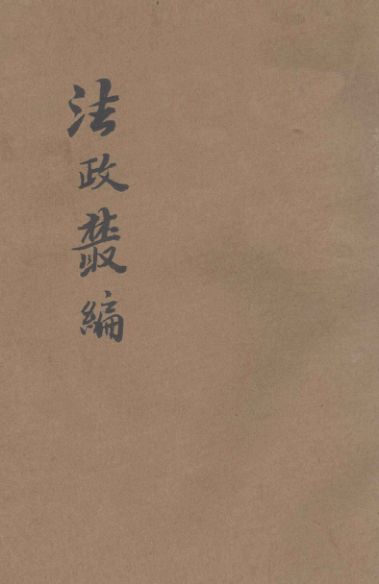 法政叢編